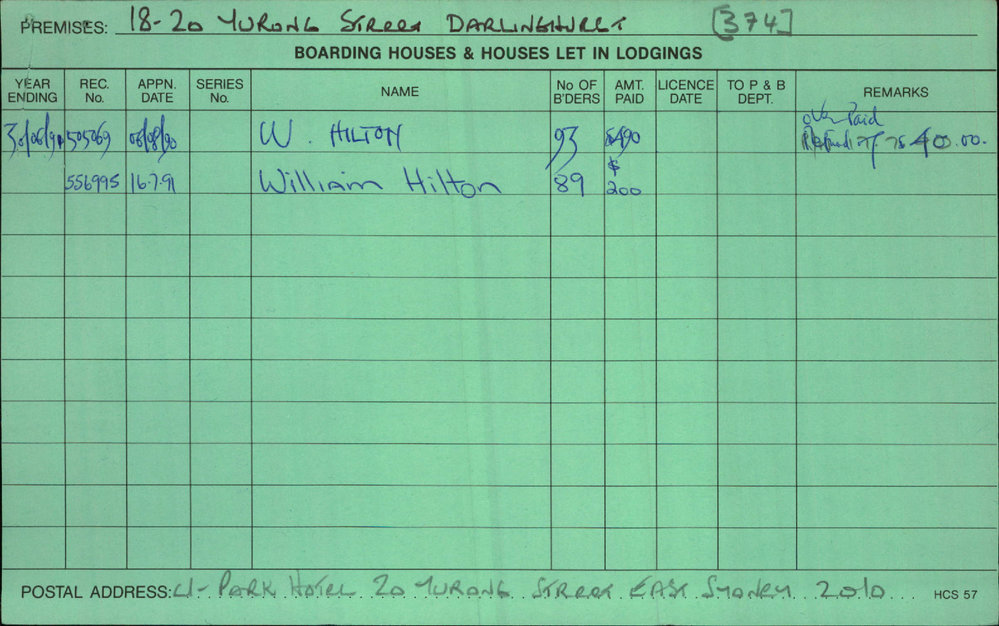 PREMISES: 18-20 YURONG STREET DARLINGHURST [374]
BOARDING HOUSES & HOUSES LET IN LODGINGS
YEAR ENDING REC. No. APPN. DATE SERIES No. NAME No OF B'DERS AMT. PAID LICENCE DATE TO P & B DEPT. REMARKS
30/06/91 505069 06/08/90 W. HILTON 93 $490 over Paid Refund of 40.00.
556995 16.7.91 William Hilton 89 $200
POSTAL ADDRESS: PARK HOTEL 20 YURONG STREET EAST SYDNEY 2010 HCS 57